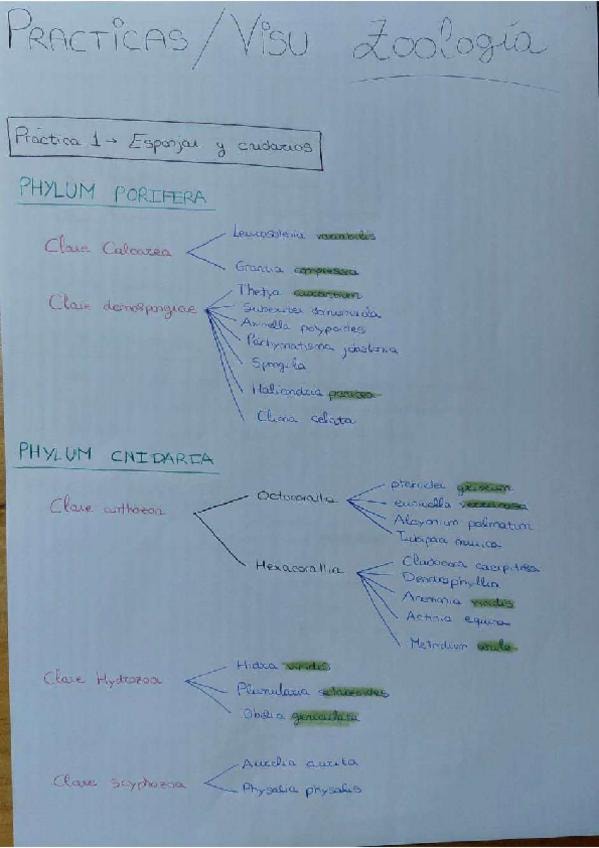 PRACTICAS/VISU Zoología
Práctica 1 → Esponjas y cnidarios
PHYLUM PORIFERA
Clase Calcarea
Leucosolenia variabilis
Grantia compressa
Clase demospongiae
Thetya aurantium
Suberites domuncula
Axinella polypoides
Pachymatisma johnstonia
Spongilla
Halicondria panicea
Cliona celata
PHYLUM CNIDARIA
Clase anthozoa
Octocorallia
pteroides griseum
eunicella verrucosa
Alcyonium palmatum
Tubipora musica
Hexacorallia
Cladocora caespitosa
Dendrophyllia
Anemonia viridis
Actinia equina
Metridium senile
Clase Hydrozoa
Hidra viridis
Plumularia setaceoides
Obelia geniculata
Clase scyphozoa
Aurelia aurita
Physalia physalis